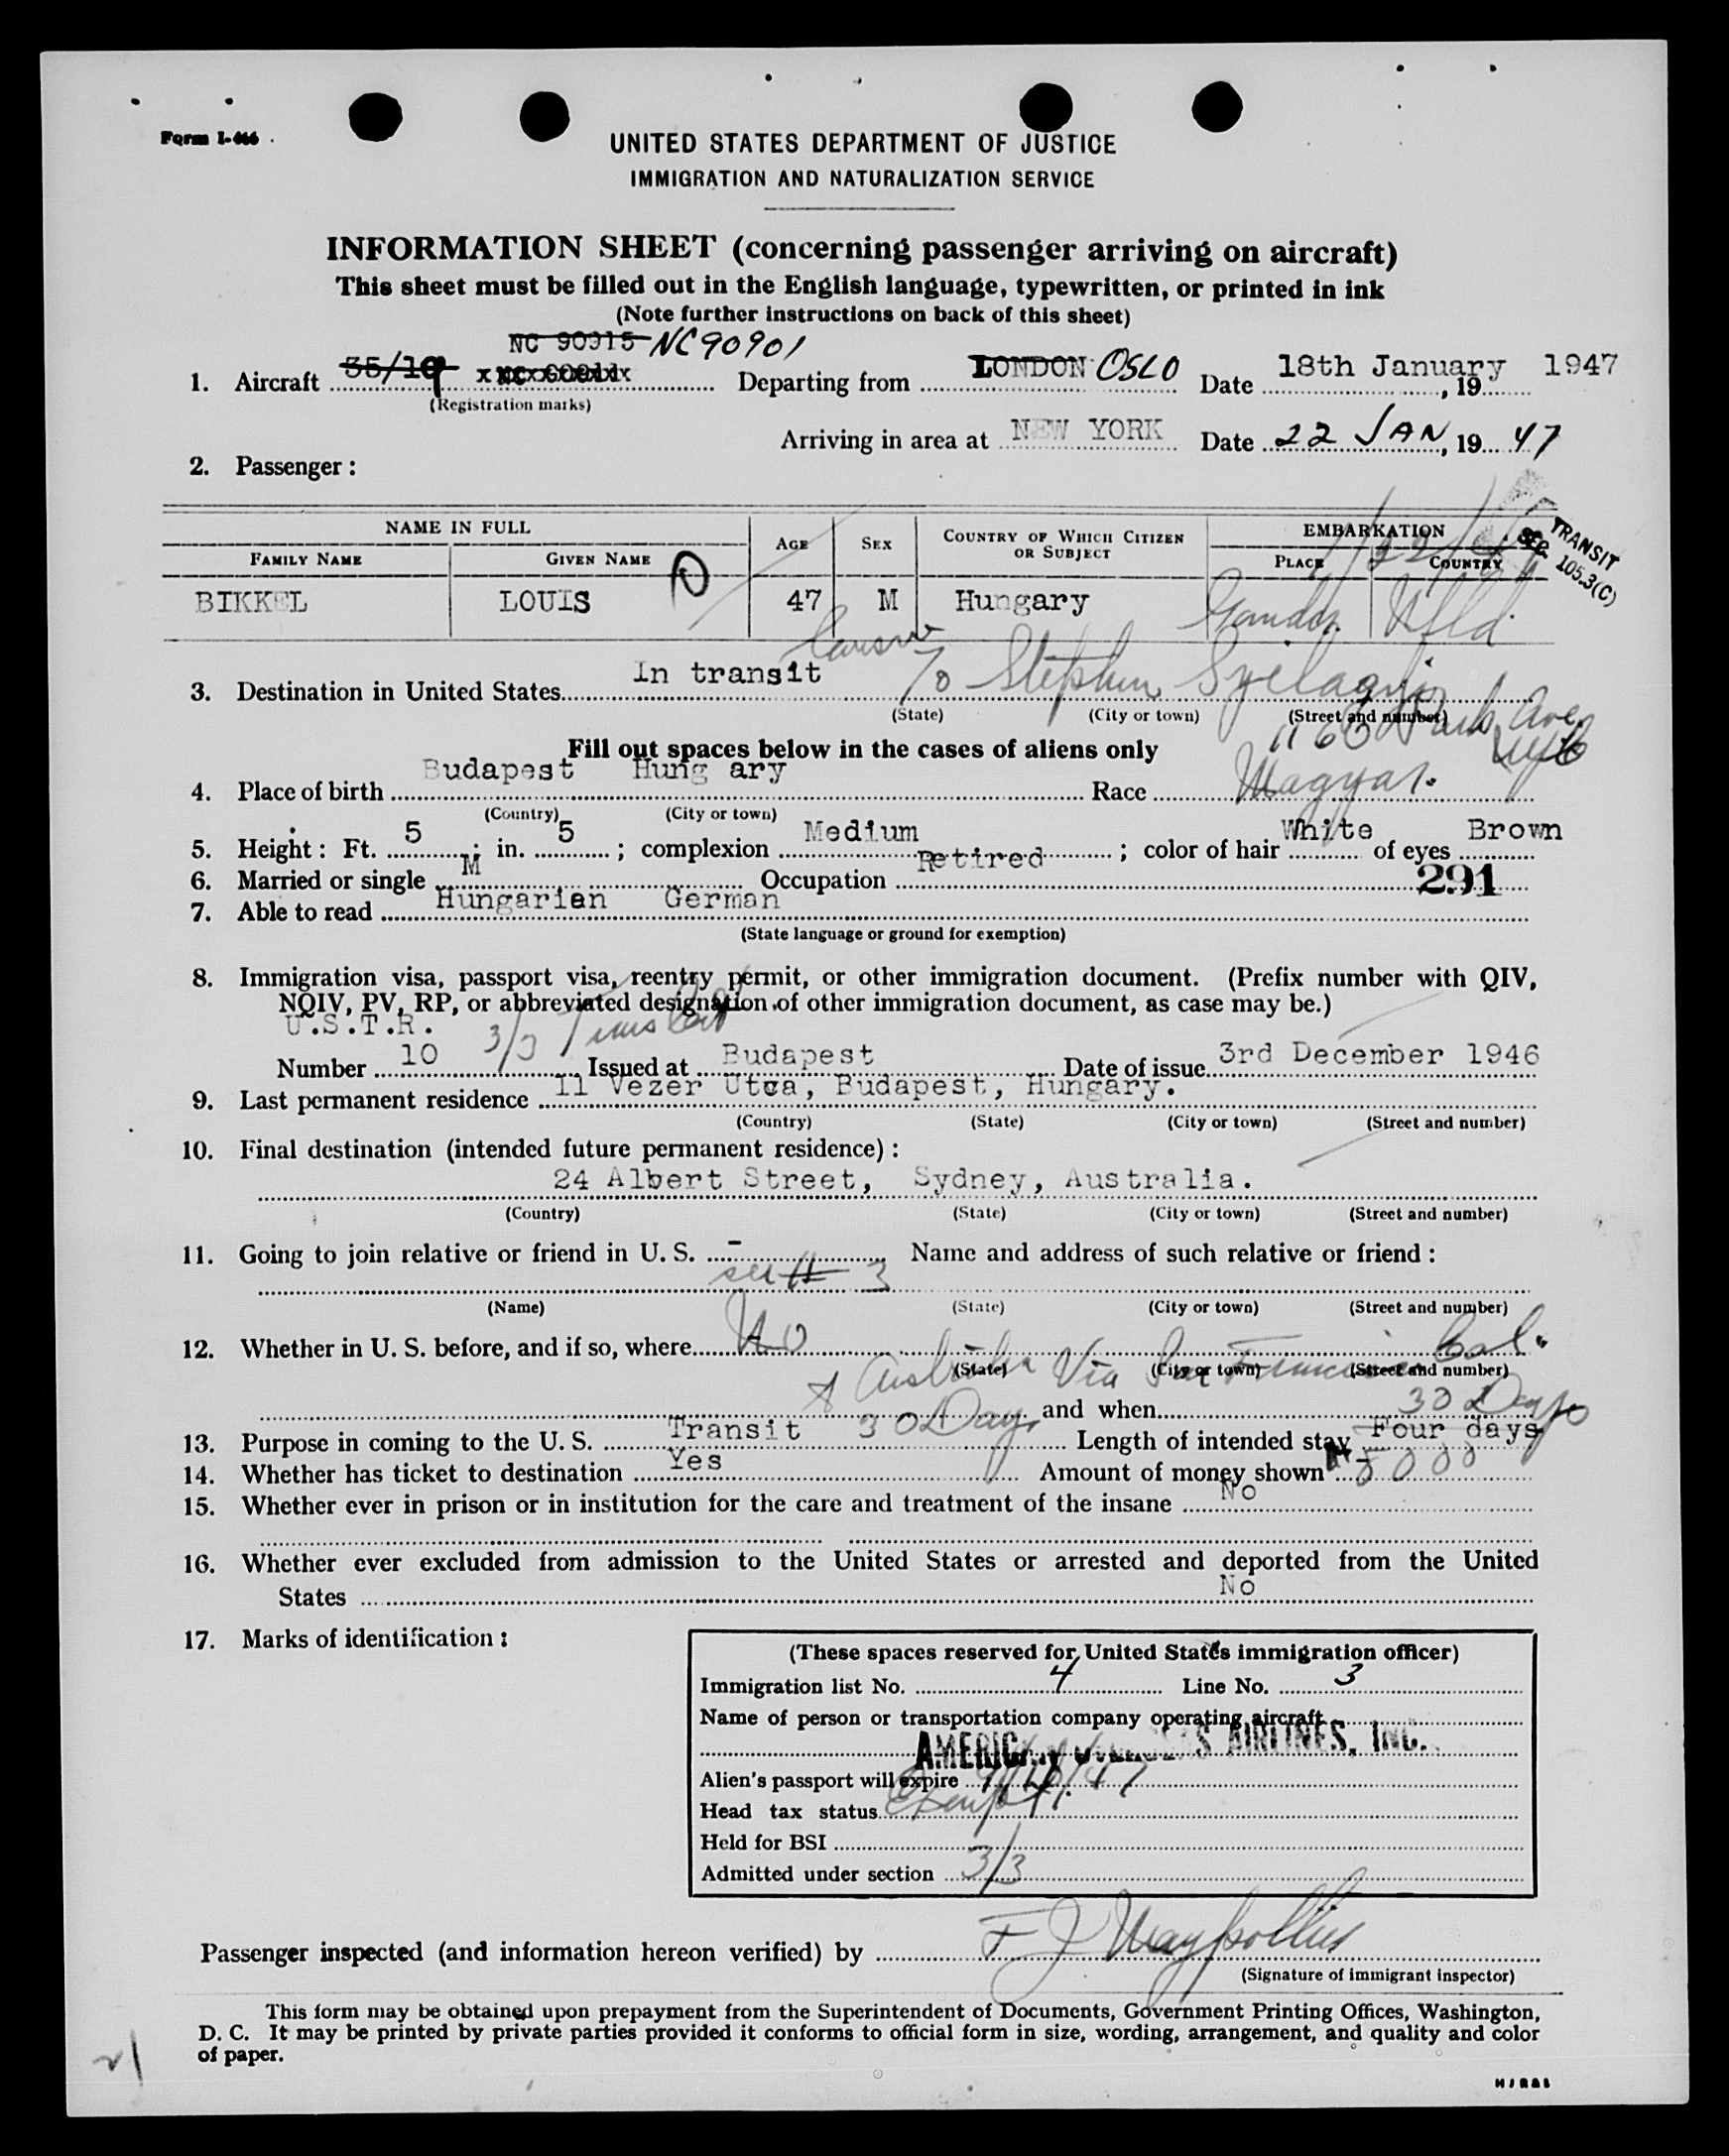 Form I-466
UNITED STATES DEPARTMENT OF JUSTICE
IMMIGRATION AND NATURALIZATION SERVICE
INFORMATION SHEET (concerning passenger arriving on aircraft)
This sheet must be filled out in the English language, typewritten, or printed in ink
(Note further instructions on back of this sheet)
NC 90915 NC90901
1. Aircraft 35/19 Departing from LONDON OSLO Date 18th January, 19 1947
(Registration marks)
Arriving in area at NEW YORK Date 22 JAN, 19 47
2. Passenger:
NAME IN FULL AGE SEX COUNTRY OF WHICH CITIZEN OR SUBJECT EMBARKATION
FAMILY NAME GIVEN NAME PLACE COUNTRY
TRANSIT SEC. 105.3(C)
BIKKEL LOUIS 47 M Hungary Gander Nfld
3. Destination in United States In transit c/o Stephen
(State) (City or town) (Street and number)
1160 Park Ave.
Fill out spaces below in the cases of aliens only
4. Place of birth Budapest Hung ary Race Magyar.
(Country) (City or town)
5. Height: Ft. 5; in. 5; complexion Medium; color of hair White of eyes Brown
6. Married or single M Occupation Retired 291
7. Able to read Hungarian German
(State language or ground for exemption)
8. Immigration visa, passport visa, reentry permit, or other immigration document. (Prefix number with QIV,
NQIV, PV, RP, or abbreviated designation of other immigration document, as case may be.)
U.S.T.R. 3/3 Trans Cert
Number 10 Issued at Budapest Date of issue 3rd December 1946
9. Last permanent residence 11 Vezer Utca, Budapest, Hungary.
(Country) (State) (City or town) (Street and number)
10. Final destination (intended future permanent residence):
24 Albert Street, Sydney, Australia.
(Country) (State) (City or town) (Street and number)
11. Going to join relative or friend in U. S. - Name and address of such relative or friend:
see # 3
(Name) (State) (City or town) (Street and number)
12. Whether in U. S. before, and if so, where No
(State) (City or town) (Street and number)
Australia Via San Francisco Cal.
and when 30 Days
13. Purpose in coming to the U. S. Transit 30 Days Length of intended stay Four days
14. Whether has ticket to destination Yes Amount of money shown 5000
15. Whether ever in prison or in institution for the care and treatment of the insane No
16. Whether ever excluded from admission to the United States or arrested and deported from the United
States No
17. Marks of identification:
(These spaces reserved for United States immigration officer)
Immigration list No. 4 Line No. 3
Name of person or transportation company operating aircraft
AMERICAN OVERSEAS AIRLINES, INC.
Alien's passport will expire
Head tax status Exempt
Held for BSI
Admitted under section 3/3
Passenger inspected (and information hereon verified) by F J
(Signature of immigrant inspector)
This form may be obtained upon prepayment from the Superintendent of Documents, Government Printing Offices, Washington,
D. C. It may be printed by private parties provided it conforms to official form in size, wording, arrangement, and quality and color
of paper.